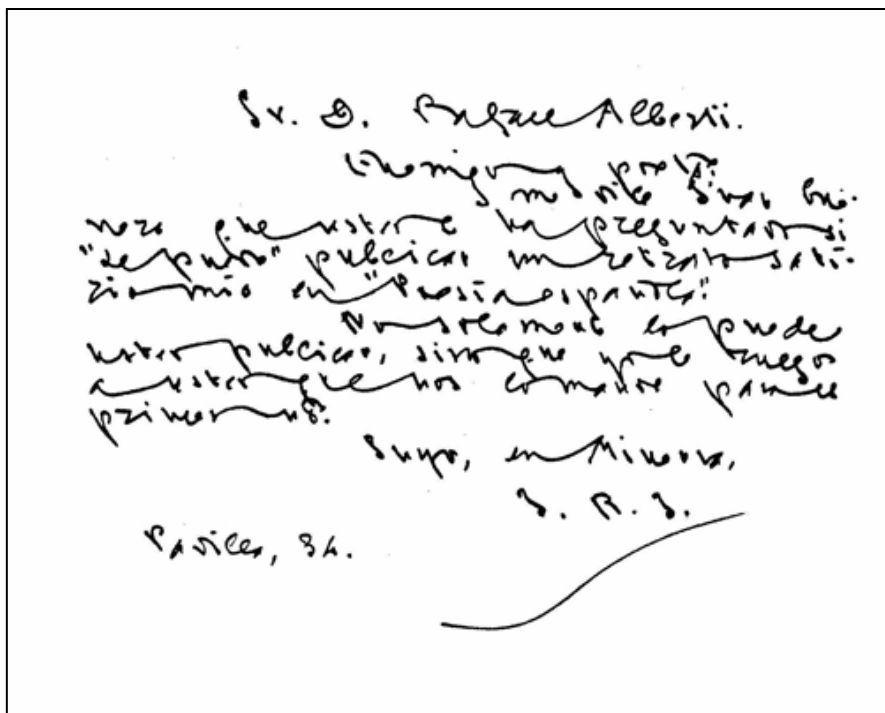 Sr. D. Rafael Alberti.
poeta:
me dice Juan Gue-
rrero que usted le ha preguntado si
"se puede" publicar un retrato satí-
rico mío en "Poesía española".
No solamente lo puede
usted publicar, sino que yo le ruego
a usted que nos lo mande para el
primer nº.
Suyo, en Minerva,
J. R. J.
Padilla, 34.